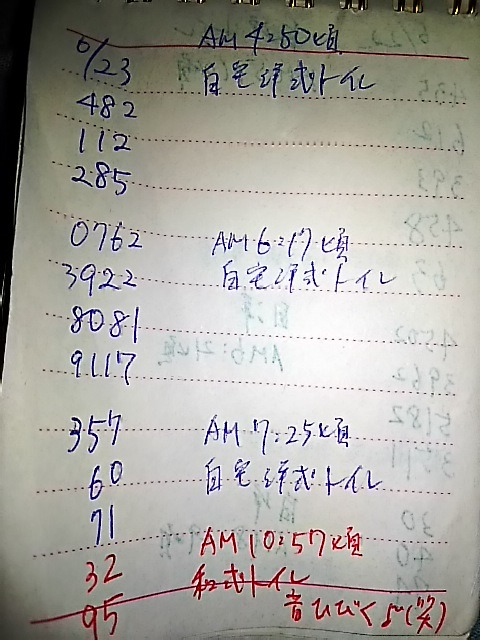 6/23 AM 4:50頃
自宅洋式トイレ
482
112
285
0762 AM 6:17頃
3922 自宅洋式トイレ
8081
9117
357 AM 7:25頃
60 自宅洋式トイレ
71
AM 10:57頃
32 和式トイレ
95 音ひびくぅ(笑)